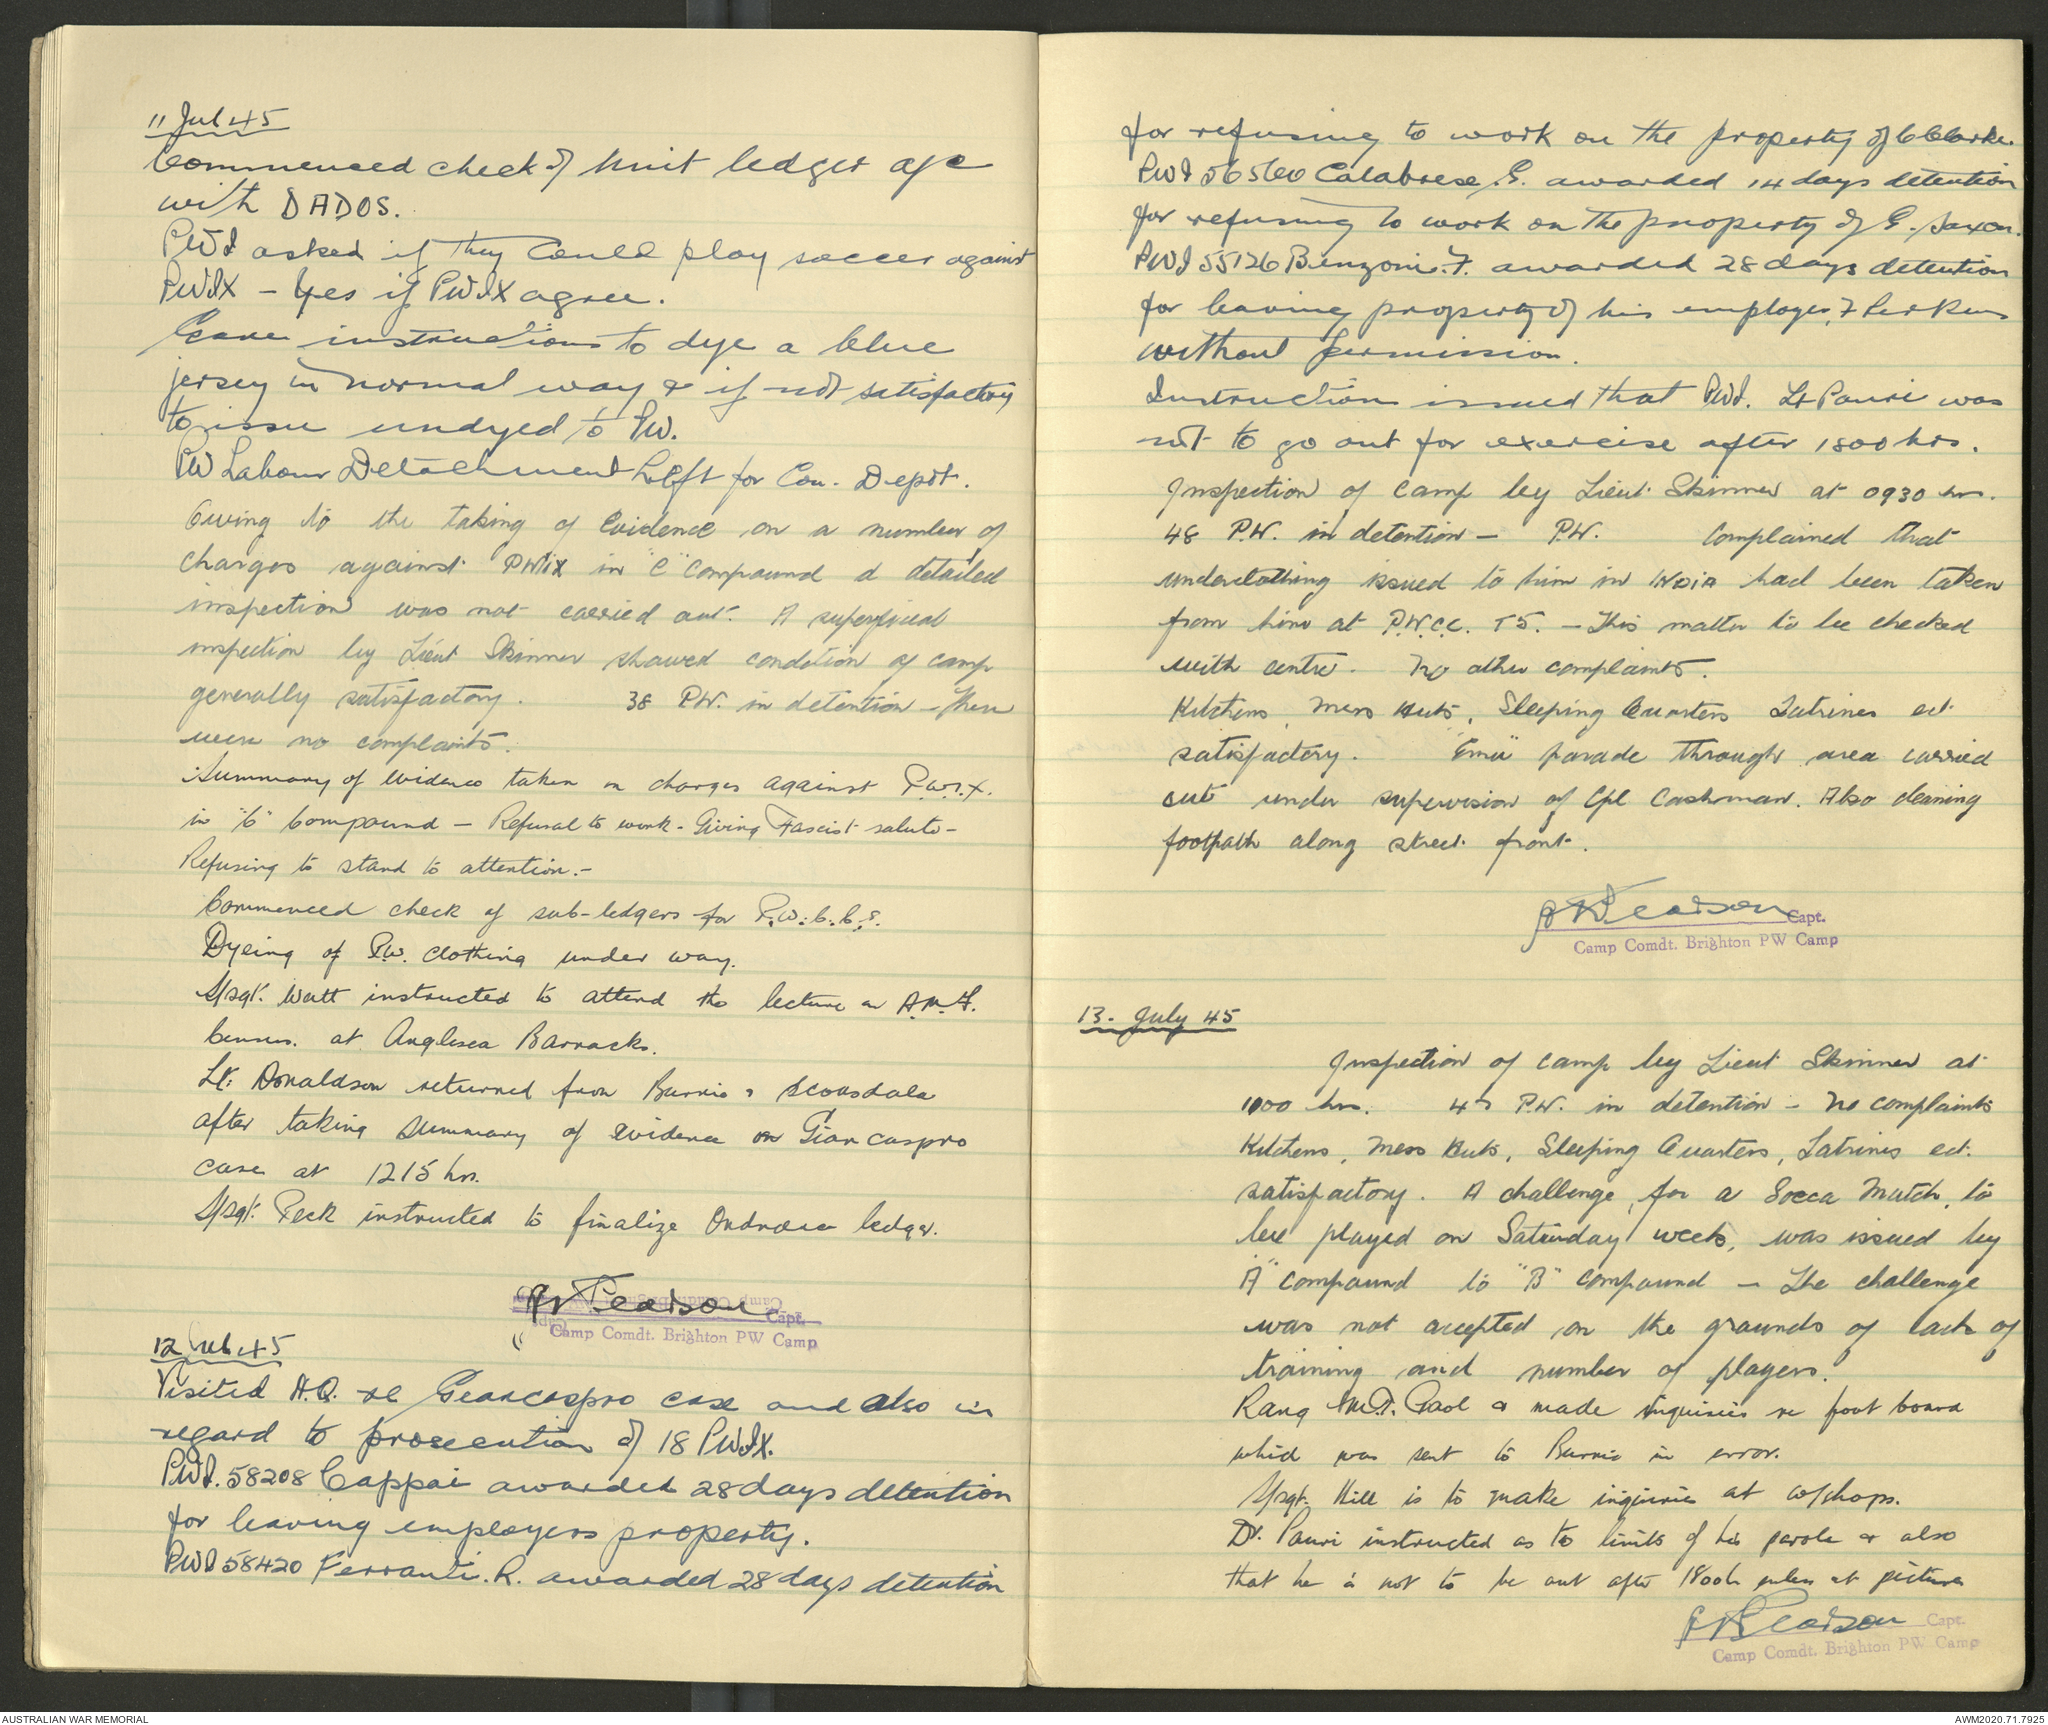 11 Jul 45
Commenced check of Unit ledger a/c
with DADOS.
PWI asked if they could play soccer against
PWIX - Yes if PWIX agree.
Gave instructions to dye a blue
jersey in normal way & if not satisfactory
to issue undyed to PW.
PW Labour Detachment Left for Con. Depot.
Owing to the taking of Evidence on a number of
charges against PWIX in "C" Compound a detailed
inspection was not carried out. A superficial
inspection by Lieut Skinner showed condition of camp
generally satisfactory. 38 P.W. in detention - There
were no complaints.
Summary of Evidence taken on charges against P.W.I.X.
in "C" Compound - Refusal to work - Giving Fascist salute -
Refusing to stand to attention. -
Commenced check of sub-ledgers for P.W.C.C.s.
Dyeing of P.W. clothing under way.
S/sgt. Watt instructed to attend the lecture on A.M.F.
Census. at Anglesea Barracks.
Lt. Donaldson returned from Burnie & Scottsdale
after taking summary of evidence on Giancaspro
case at 1215 hrs.
S/sgt. Peck instructed to finalize Ordnance ledger.
Pearson
Capt.
Camp Comdt. Brighton PW Camp
12 Jul 45
Visited H.Q. re Giancaspro case and also in
regard to prosecution of 18 PWIX.
PWI. 58208 Cappai awarded 28 days detention
for leaving employers property.
PWI 58420 Ferranti. R. awarded 28 days detention
for refusing to work on the property of C Clarke.
PWI 56560 Calabrese. G. awarded 14 days detention
for refusing to work on the property of G. Saxon.
PWI 55126 Benzoni. F. awarded 28 days detention
for leaving property of his employer, F Perkins
without permission.
Instructions issued that PWI. Lt Pauri was
not to go out for exercise after 1800 hrs.
Inspection of camp by Lieut. Skinner at 0930 hrs.
48 P.W. in detention - P.W. Complained that
underclothing issued to him in INDIA had been taken
from him at P.W.C.C. T5. - This matter to be checked
with centre. No other complaints.
Kitchens, Mess Huts, Sleeping Quarters Latrines ect.
satisfactory. "Emu" parade through area carried
out under supervision of Cpl Cashman. Also cleaning
footpath along street front.
Pearson
Capt.
Camp Comdt. Brighton PW Camp
13. July 45
Inspection of camp by Lieut Skinner at
1000 hrs. P.W. in detention - No complaints
Kitchens, Mess Huts, Sleeping Quarters, Latrines ect.
satisfactory. A challenge, for a Socca Match, to
be played on Saturday week, was issued by
"A" compound to "B" compound - The challenge
was not accepted on the grounds of lack of
training and number of players.
Rang Gaol & made inquiries re foot board
which was sent to Burnie in error.
S/sgt. Hill is to make inquiries at w/shops.
Dr. Pauri instructed as to limits of his parole & also
that he is not to be out after 1800h unless at pictures
Pearson
Capt.
Camp Comdt. Brighton PW Camp
AUSTRALIAN WAR MEMORIAL
AWM2020.71.7925